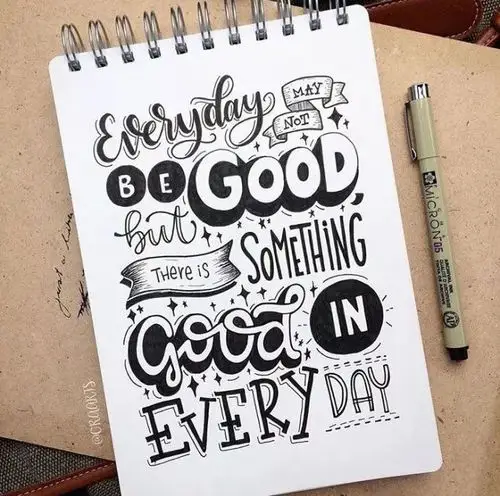 Everyday MAY
NOT
BE GOOD,
but
THERE IS SOMETHING
Good IN
EVERY DAY
just a line
@CROOKTS
MICRON 05